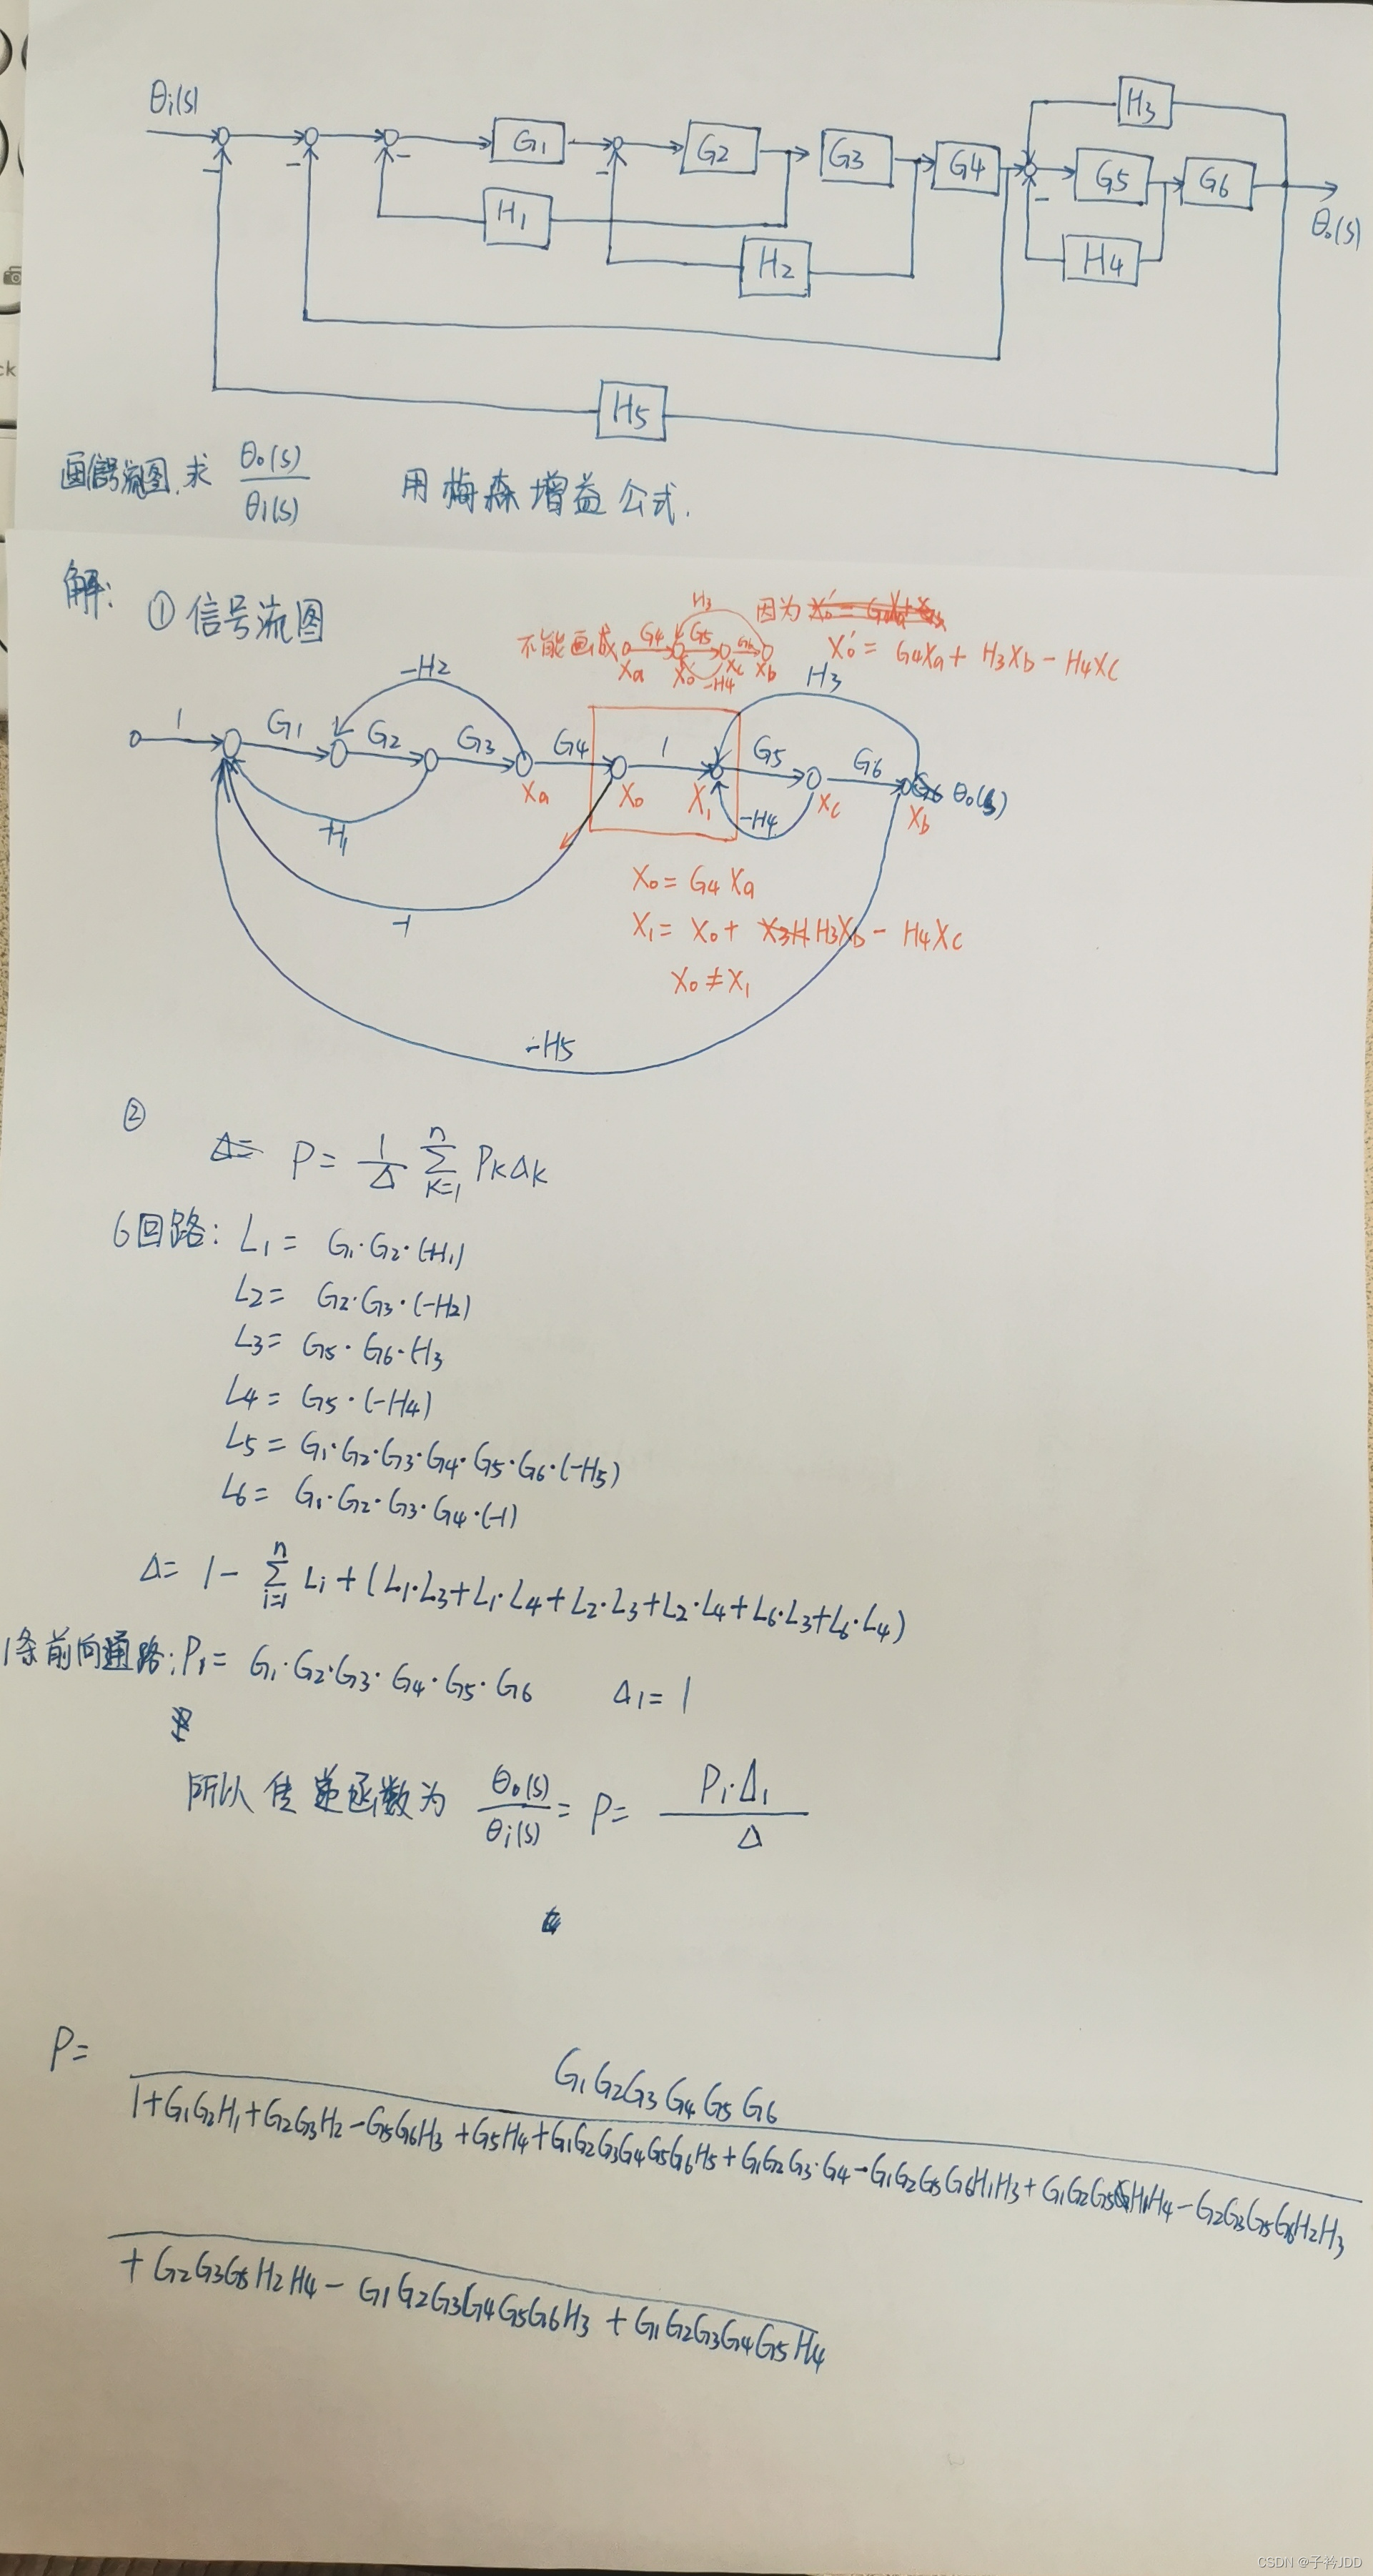 θi(s)
H3
G1 G2 G3 G4 G5 G6
H1
H2
H4
θo(s)
H5
画信号流图,求 θo(s)/θi(s) 用梅森增益公式.
解: ① 信号流图
不能画成
Xa G4 Xo' G5 Xc G6 Xb H3 -H4
因为
Xo' = G4Xa + H3Xb - H4Xc
-H2
H3
1 G1 G2 G3 G4 1 G5 G6 θo(s)
Xa Xo X1 Xc Xb
-H1
-H4
-1
Xo = G4 Xa
X1 = Xo + H3Xb - H4Xc
Xo ≠ X1
-H5
②
Δ= P = 1/Δ Σ(k=1→n) PkΔk
6回路: L1 = G1·G2·(-H1)
L2 = G2·G3·(-H2)
L3 = G5·G6·H3
L4 = G5·(-H4)
L5 = G1·G2·G3·G4·G5·G6·(-H5)
L6 = G1·G2·G3·G4·(-1)
Δ = 1 - Σ(i=1→n) Li + (L1·L3+L1·L4+L2·L3+L2·L4+L6·L3+L6·L4)
1条前向通路: P1 = G1·G2·G3·G4·G5·G6 Δ1 = 1
所以传递函数为 θo(s)/θi(s) = P = P1·Δ1/Δ
P=
G1G2G3G4G5G6
1+G1G2H1+G2G3H2-G5G6H3+G5H4+G1G2G3G4G5G6H5+G1G2G3·G4-G1G2G5G6H1H3+G1G2G5H1H4-G2G3G5G6H2H3
+G2G3G5H2H4-G1G2G3G4G5G6H3+G1G2G3G4G5H4
CSDN @子衿JDD
ck